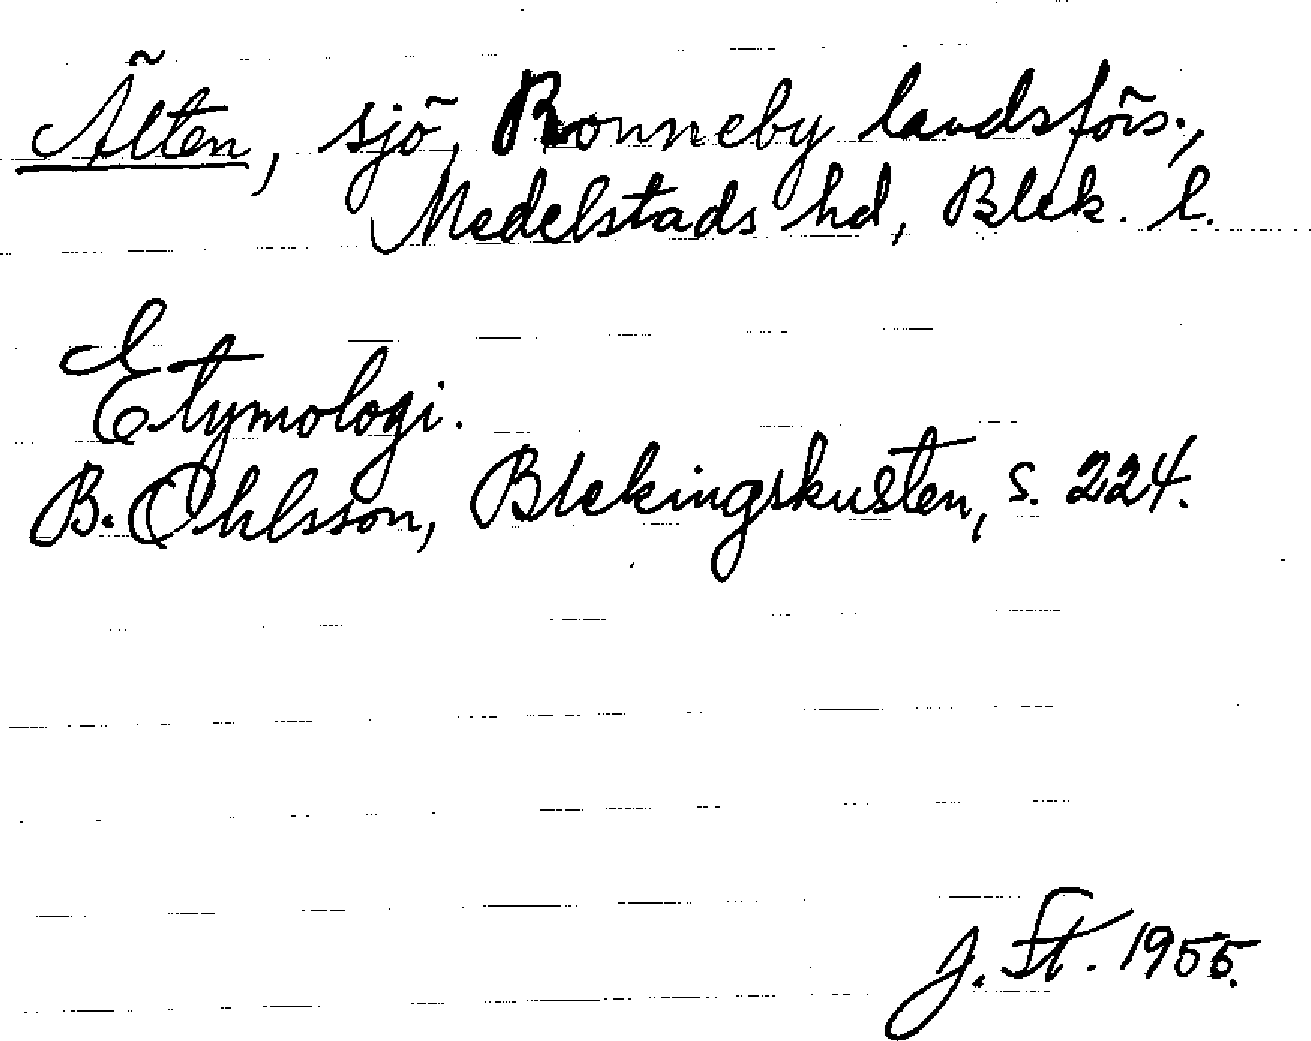 Älten, sjö, Ronneby landsförs.,
Medelstads hd, Blek. l.
Etymologi.
B. Ohlsson, Blekingskusten, s. 224.
J. St. 1955.